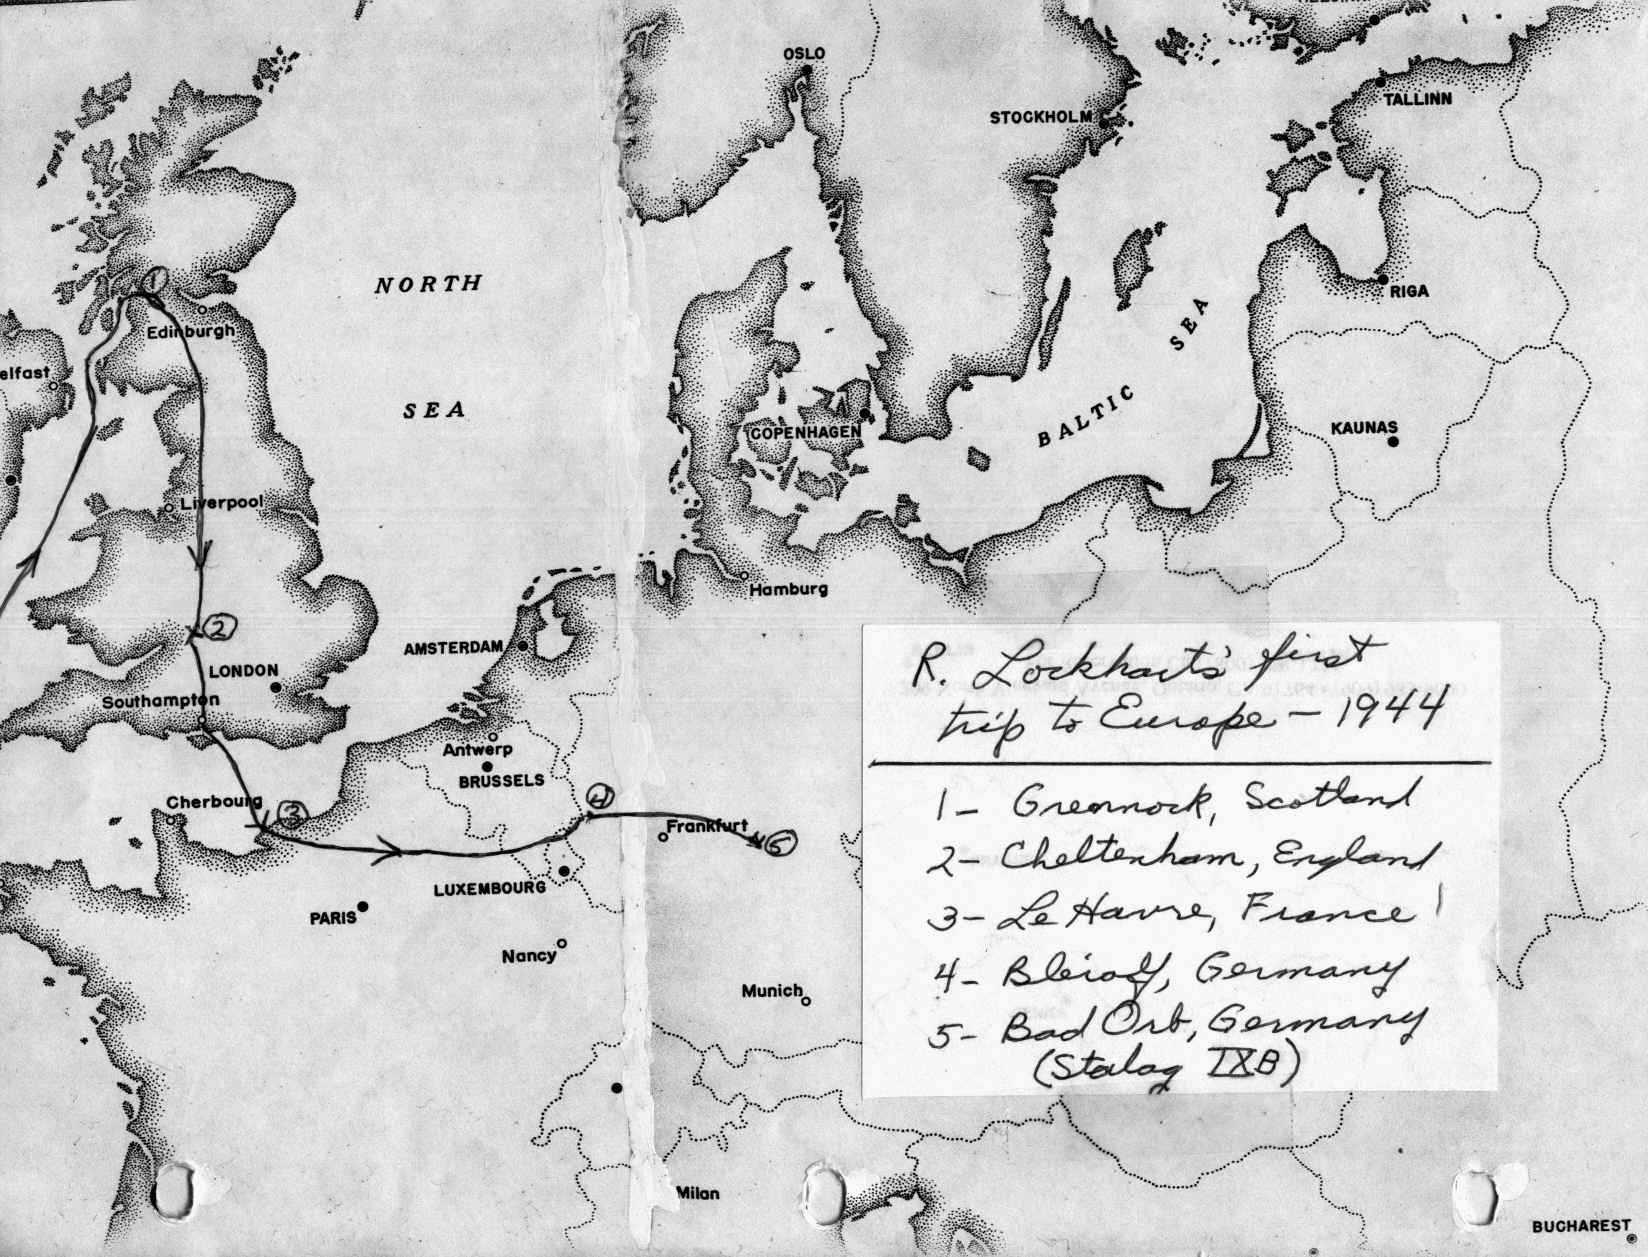 OSLO
STOCKHOLM
TALLINN
NORTH
SEA
1
Edinburgh
RIGA
BALTIC SEA
elfast
COPENHAGEN
KAUNAS
Liverpool
Hamburg
2
AMSTERDAM
LONDON
Southampton
Antwerp
BRUSSELS
Cherbourg
3
4
Frankfurt
5
LUXEMBOURG
PARIS
Nancy
Munich
Milan
BUCHAREST
R. Lockharts' first
trip to Europe - 1944
1- Greennock, Scotland
2- Cheltenham, England
3- Le Havre, France
4- Bleialf, Germany
5- Bad Orb, Germany
(Stalag IXB)